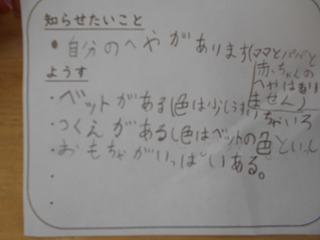 知らせたいこと
●自分のへやがあります(ママとパパと
赤ちゃんの
へやはあり
ません)
ようす
・ベットがある(色は少しうすいちゃいろ
・つくえがある(色はベットの色といっし
・おもちゃがいっぱいある。
・
・